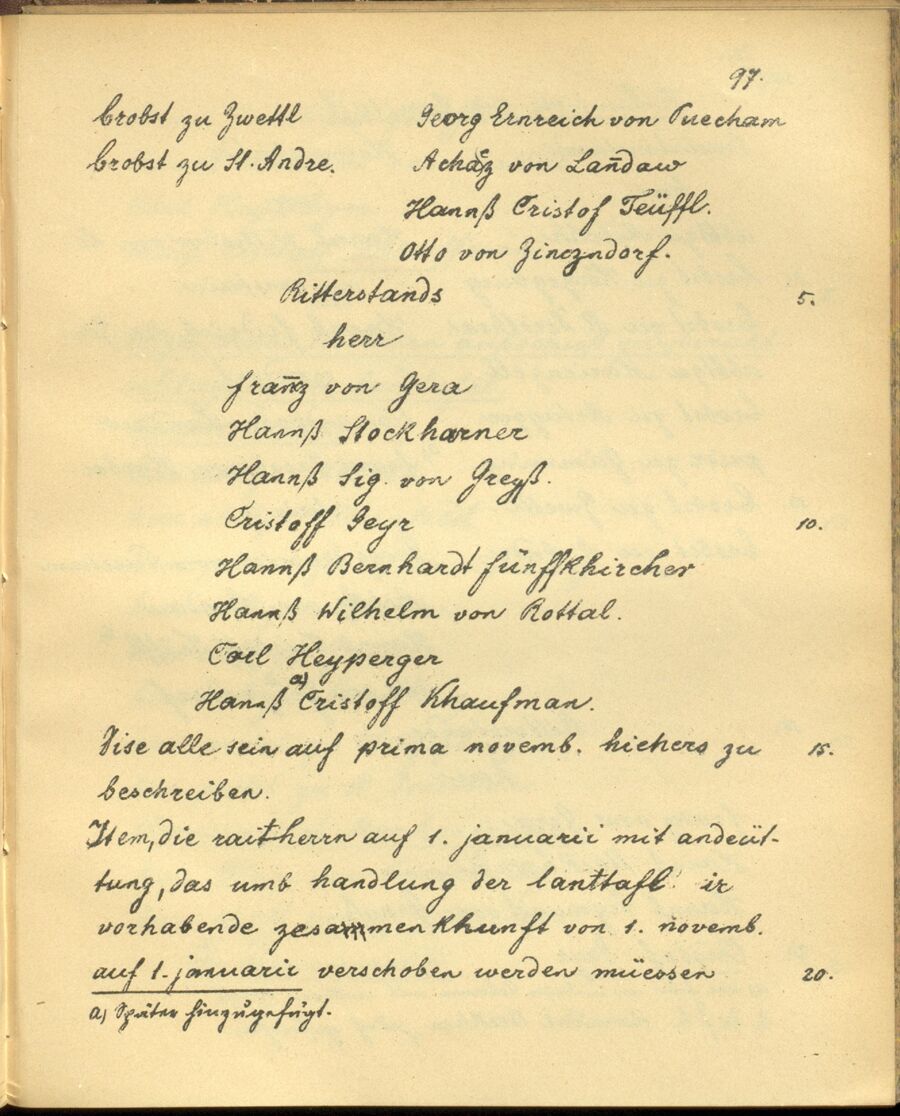 97.
brobst zu Zwettl Georg Ernreich von Puecham
brobst zu St. Andre. Achacz von Lan̄daw
Hannß Cristof Teüffl.
Otto von Zinczndorf.
Ritterstands 5.
herr
fran̄z von Gera
Hannß Stockharner
Hannß Sig. von Greyß.
Cristoff Geyr 10.
Hannß Bernhardt fünffkhircher
Hannß Wilhelm von Rottal.
Carl Heyperger
Hannß a) Cristoff Khaufman.
Dise alle sein auf prima novemb. hiehero zu 15.
beschreiben.
Item, die raitherrn auf 1. januarii mit andeüt-
tung, das umb handlung der lanttafl ir
vorhabende zesammenkhunft von 1. novemb.
auf 1. januarii verschoben werden müessen 20.
a) Später hinzugefügt.